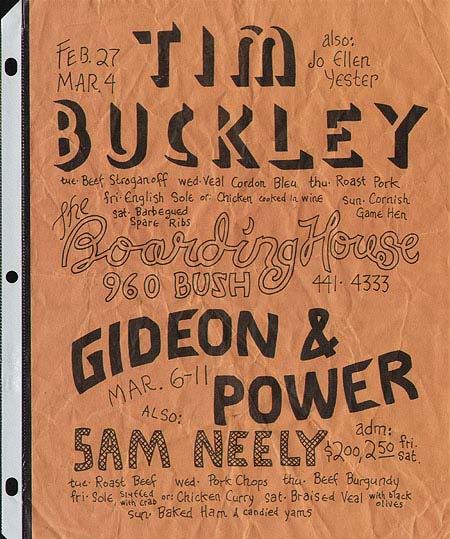 FEB. 27
MAR. 4
TIM
BUCKLEY
also:
Jo Ellen
Yester
tue· Beef Stroganoff wed· Veal Cordon Bleu thu· Roast Pork
fri· English Sole or Chicken cooked in wine sun· Cornish
Game Hen
sat· Barbequed
Spare Ribs
the
Boarding House
960 BUSH 441·4333
GIDEON &
POWER
MAR. 6-11
ALSO:
SAM NEELY
adm:
$2.00, 2.50 fri·
sat.
tue· Roast Beef wed· Pork Chops thu· Beef Burgundy
fri· Sole stuffed with crab or: Chicken Curry sat· Braised Veal with black olives
sun· Baked Ham & candied yams